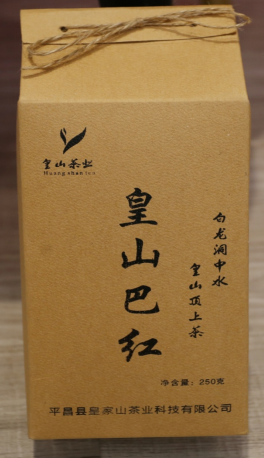 皇山茶业
Huang shan tea
皇山巴红
白龙涧中水
皇山顶上茶
净含量：250克
平昌县皇家山茶业科技有限公司